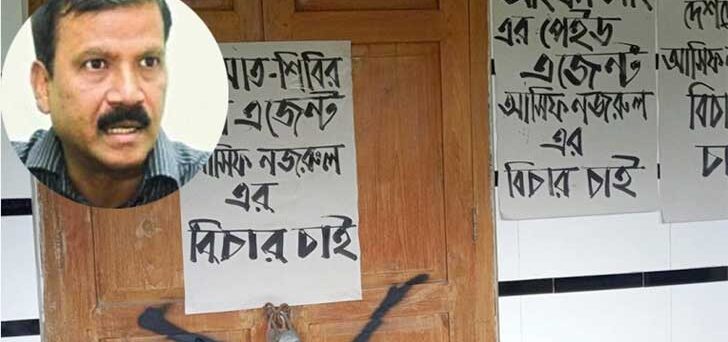 মাত-শিবির
এজেন্ট
আসিফ নজরুল
এর
বিচার চাই
এর পেইড
এজেন্ট
আসিফ নজরুল
এর
বিচার চাই
আসিফ
বিচা
চা